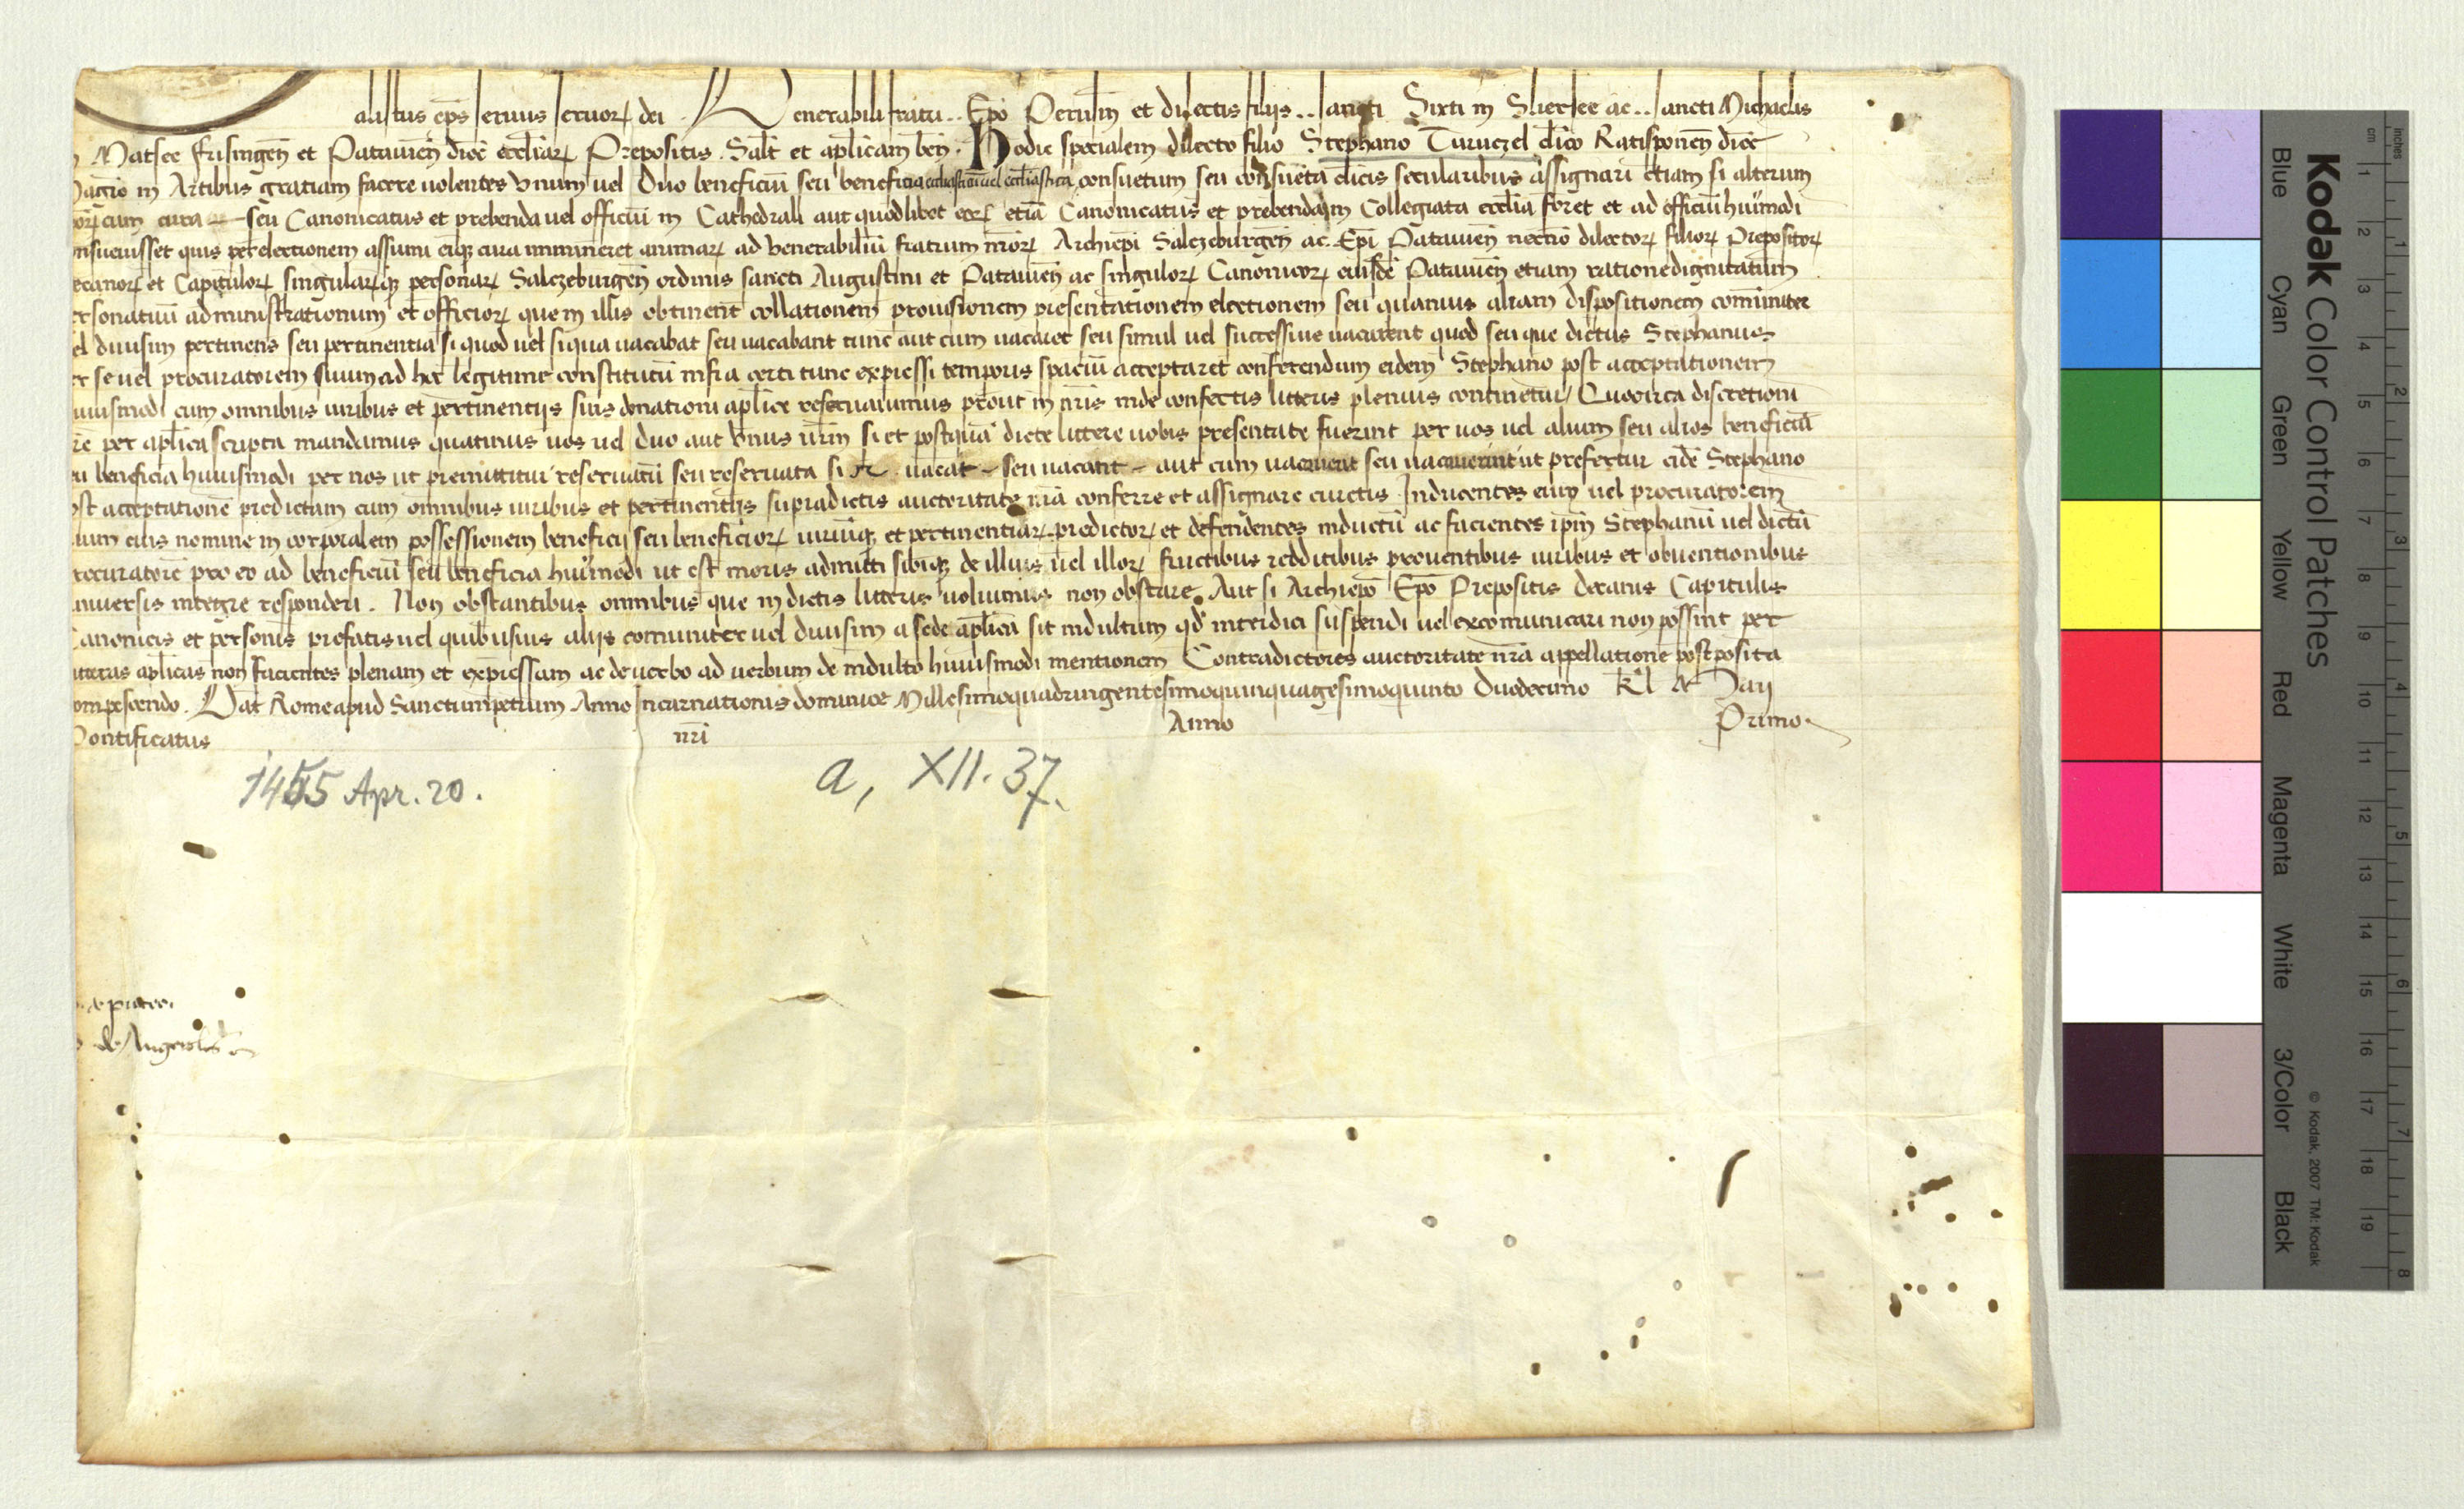 alistus ep̄s seruus seruoꝝ dei . Venerabili fratri .. Ep̄o Verulan̄ et dilectis filijs .. sancti Sixti in Sliersee ac .. sancti Michaelis
Matsee Frisingen̄ et Patauien̄ dioc̄ ecc̄liaꝝ Prepositis . Salt̄ et ap̄licam ben̄ . Hodie specialem dilecto filio Stephano Turuczel cl̄ico Ratisponen̄ dioc̄
in Artibus gratiam facere uolentes Vnum uel Duo beneficiū seu beneficia ecclesiasticū uel ecclesiastica consuetum seu consueta cl̄icis secularibus assignari etiam si alterum
oꝝ cum cura seu Canonicatus et prebenda uel officiū in Cathedrali aut quodlibet eoꝝ etiā Canonicatus et prebenda in Collegiata ecc̄lia foret et ad officiū hui͞modi
nsueuisset quis per electionem assumi eiqꝫ cura immineret animaꝝ ad Venerabiliū fratrum nr̄oꝝ Archiep̄i Salczeburgen̄ ac Ep̄i Patauien̄ necnō dilectoꝝ filioꝝ Prepositoꝝ
ecanoꝝ et Capituloꝝ singulaꝝqꝫ personaꝝ Salczeburgen̄ ordinis sancti Augustini et Patauien̄ ac singuloꝝ Canonicoꝝ eiusdē Patauien̄ etiam ratione dignitatum
ersonatuū administrationum et officioꝝ que in illis obtinent collationem prouisionem presentationem electionem seu quamuis aliam dispositionem com̄uniter
el diuisim pertinens seu pertinentia si quod uel si qua uacabat seu uacabant tunc aut cum uacaret seu simul uel successiue uacarent quod seu que dictus Stephanus
er se uel procuratorem suum ad hoc legitime constitutū infra certi tunc expressi temporis spaciū acceptaret conferendum eidem Stephano post acceptationem
uiusmodi cum omnibus iuribus et pertinentijs suis donationi ap̄lice reseruauimus prout in nr̄is inde confectis litteris plenius continetur / Quocirca discretioni
r̄e per ap̄lica scripta mandamus quatinus uos uel duo aut Vnus ur̄m si et postquā dicte littere uobis presentate fuerint per uos uel alium seu alios beneficiū
u beneficia huiusmodi per nos ut premittitur reseruatū seu reseruata si uacat - seu uacant - aut cum uacauerit seu uacauerint ut prefertur eidē Stephano
ost acceptationē predictam cum omnibus iuribus et pertinentijs supradictis auctoritate nr̄a conferre et assignare curetis Inducentes eum uel procuratorem
uum eius nomine in corporalem possessionem beneficij seu beneficioꝝ iuriūqꝫ et pertinentiaꝝ predictoꝝ et defendentes inductū ac facientes ip̄m Stephanū uel dictū
rocuratorē pro eo ad beneficiū seu beneficia hui͞modi ut est moris admitti sibiqꝫ de illius uel illoꝝ fructibus redditibus prouentibus iuribus et obuentionibus
niuersis integre responderi . Non obstantibus omnibus que in dictis litteris uoluimus non obstare Aut si Archiep̄o Ep̄o Prepositis Decanis Capitulis
anonicis et personis prefatis uel quibusuis alijs comuniter uel diuisim a sede ap̄lica sit indultum qd̓ interdici suspendi uel excomunicari non possint per
itteras ap̄licas non facientes plenam et expressam ac de uerbo ad uerbum de indulto huiusmodi mentionem Contradictores auctoritate nr̄a appellatione postposita
ompescendo . Dat̄ Rome apud Sanctumpetrum Anno Incarnationis dominice Millesimoquadringentesimoquinquagesimoquinto Duodecimo Kl̄ Maij
Pontificatus nr̄i Anno Primo
1455 Apr. 20. a, XII. 37.
de Angerol
Kodak Color Control Patches
Blue Cyan Green Yellow Red Magenta White 3/Color Black
© Kodak, 2007 TM: Kodak
cm 1 2 3 4 5 6 7 8 9 10 11 12 13 14 15 16 17 18 19
inches 1 2 3 4 5 6 7 8